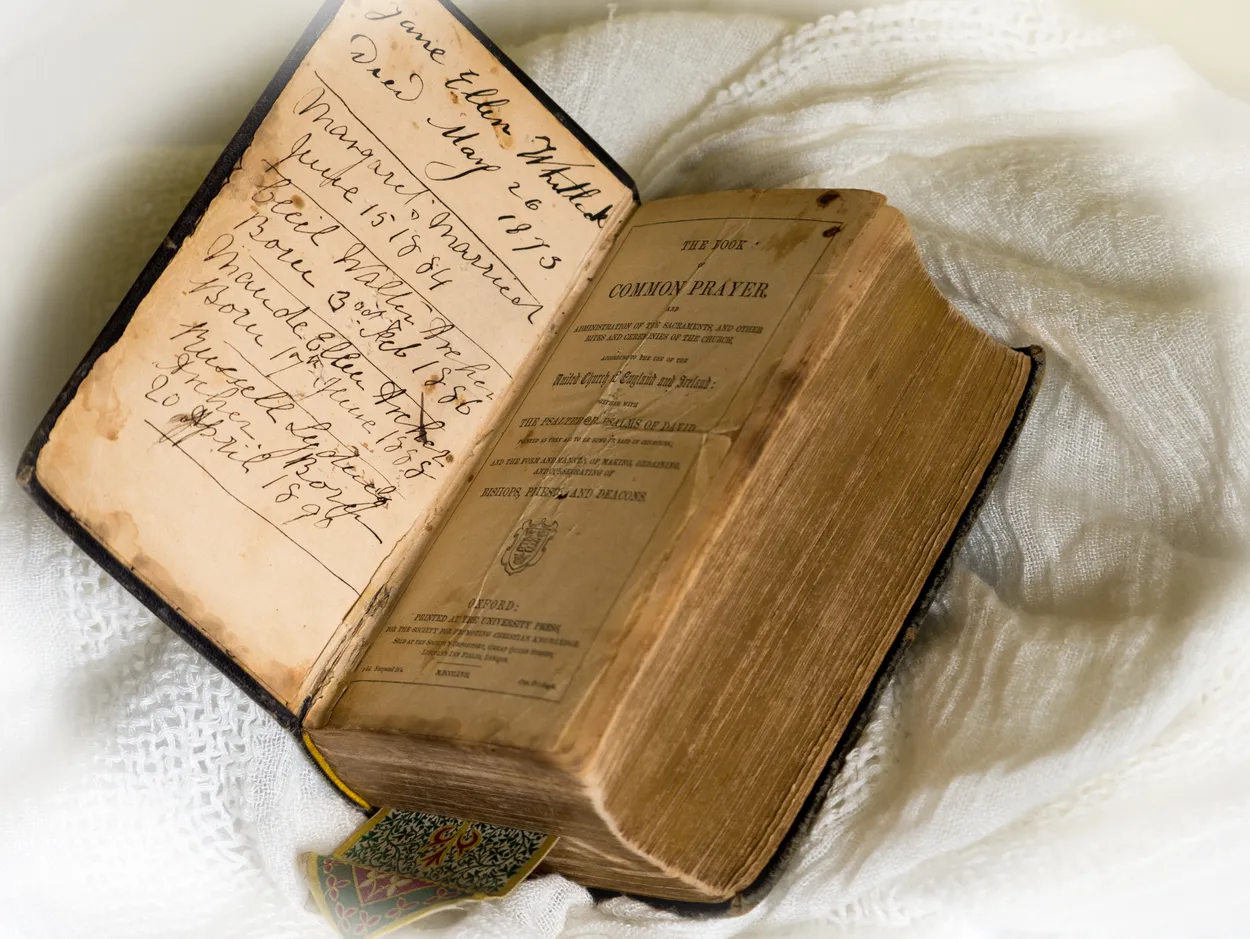 Jane Ellen Whitlock
Died May 26
1873
Margaret Married
June 15 1884
Cecil Walter Archer
Born 3 Feb 1886
Maude Ellen Archer
Born June 1888
Russell Lydiard
Archer Born
20 April 1890
THE BOOK
OF
COMMON PRAYER,
AND
ADMINISTRATION OF THE SACRAMENTS, AND OTHER
RITES AND CEREMONIES OF THE CHURCH,
ACCORDING TO THE USE OF THE
United Church of England and Ireland:
TOGETHER WITH
THE PSALTER OR PSALMS OF DAVID,
POINTED AS THEY ARE TO BE SUNG OR SAID IN CHURCHES;
AND THE FORM AND MANNER OF MAKING, ORDAINING,
AND CONSECRATING OF
BISHOPS, PRIESTS, AND DEACONS.
OXFORD:
PRINTED AT THE UNIVERSITY PRESS,
FOR THE SOCIETY FOR PROMOTING CHRISTIAN KNOWLEDGE,
SOLD AT THE SOCIETY'S DEPOSITORY, GREAT QUEEN STREET,
LINCOLN'S INN FIELDS, LONDON.
Cum Privilegio.